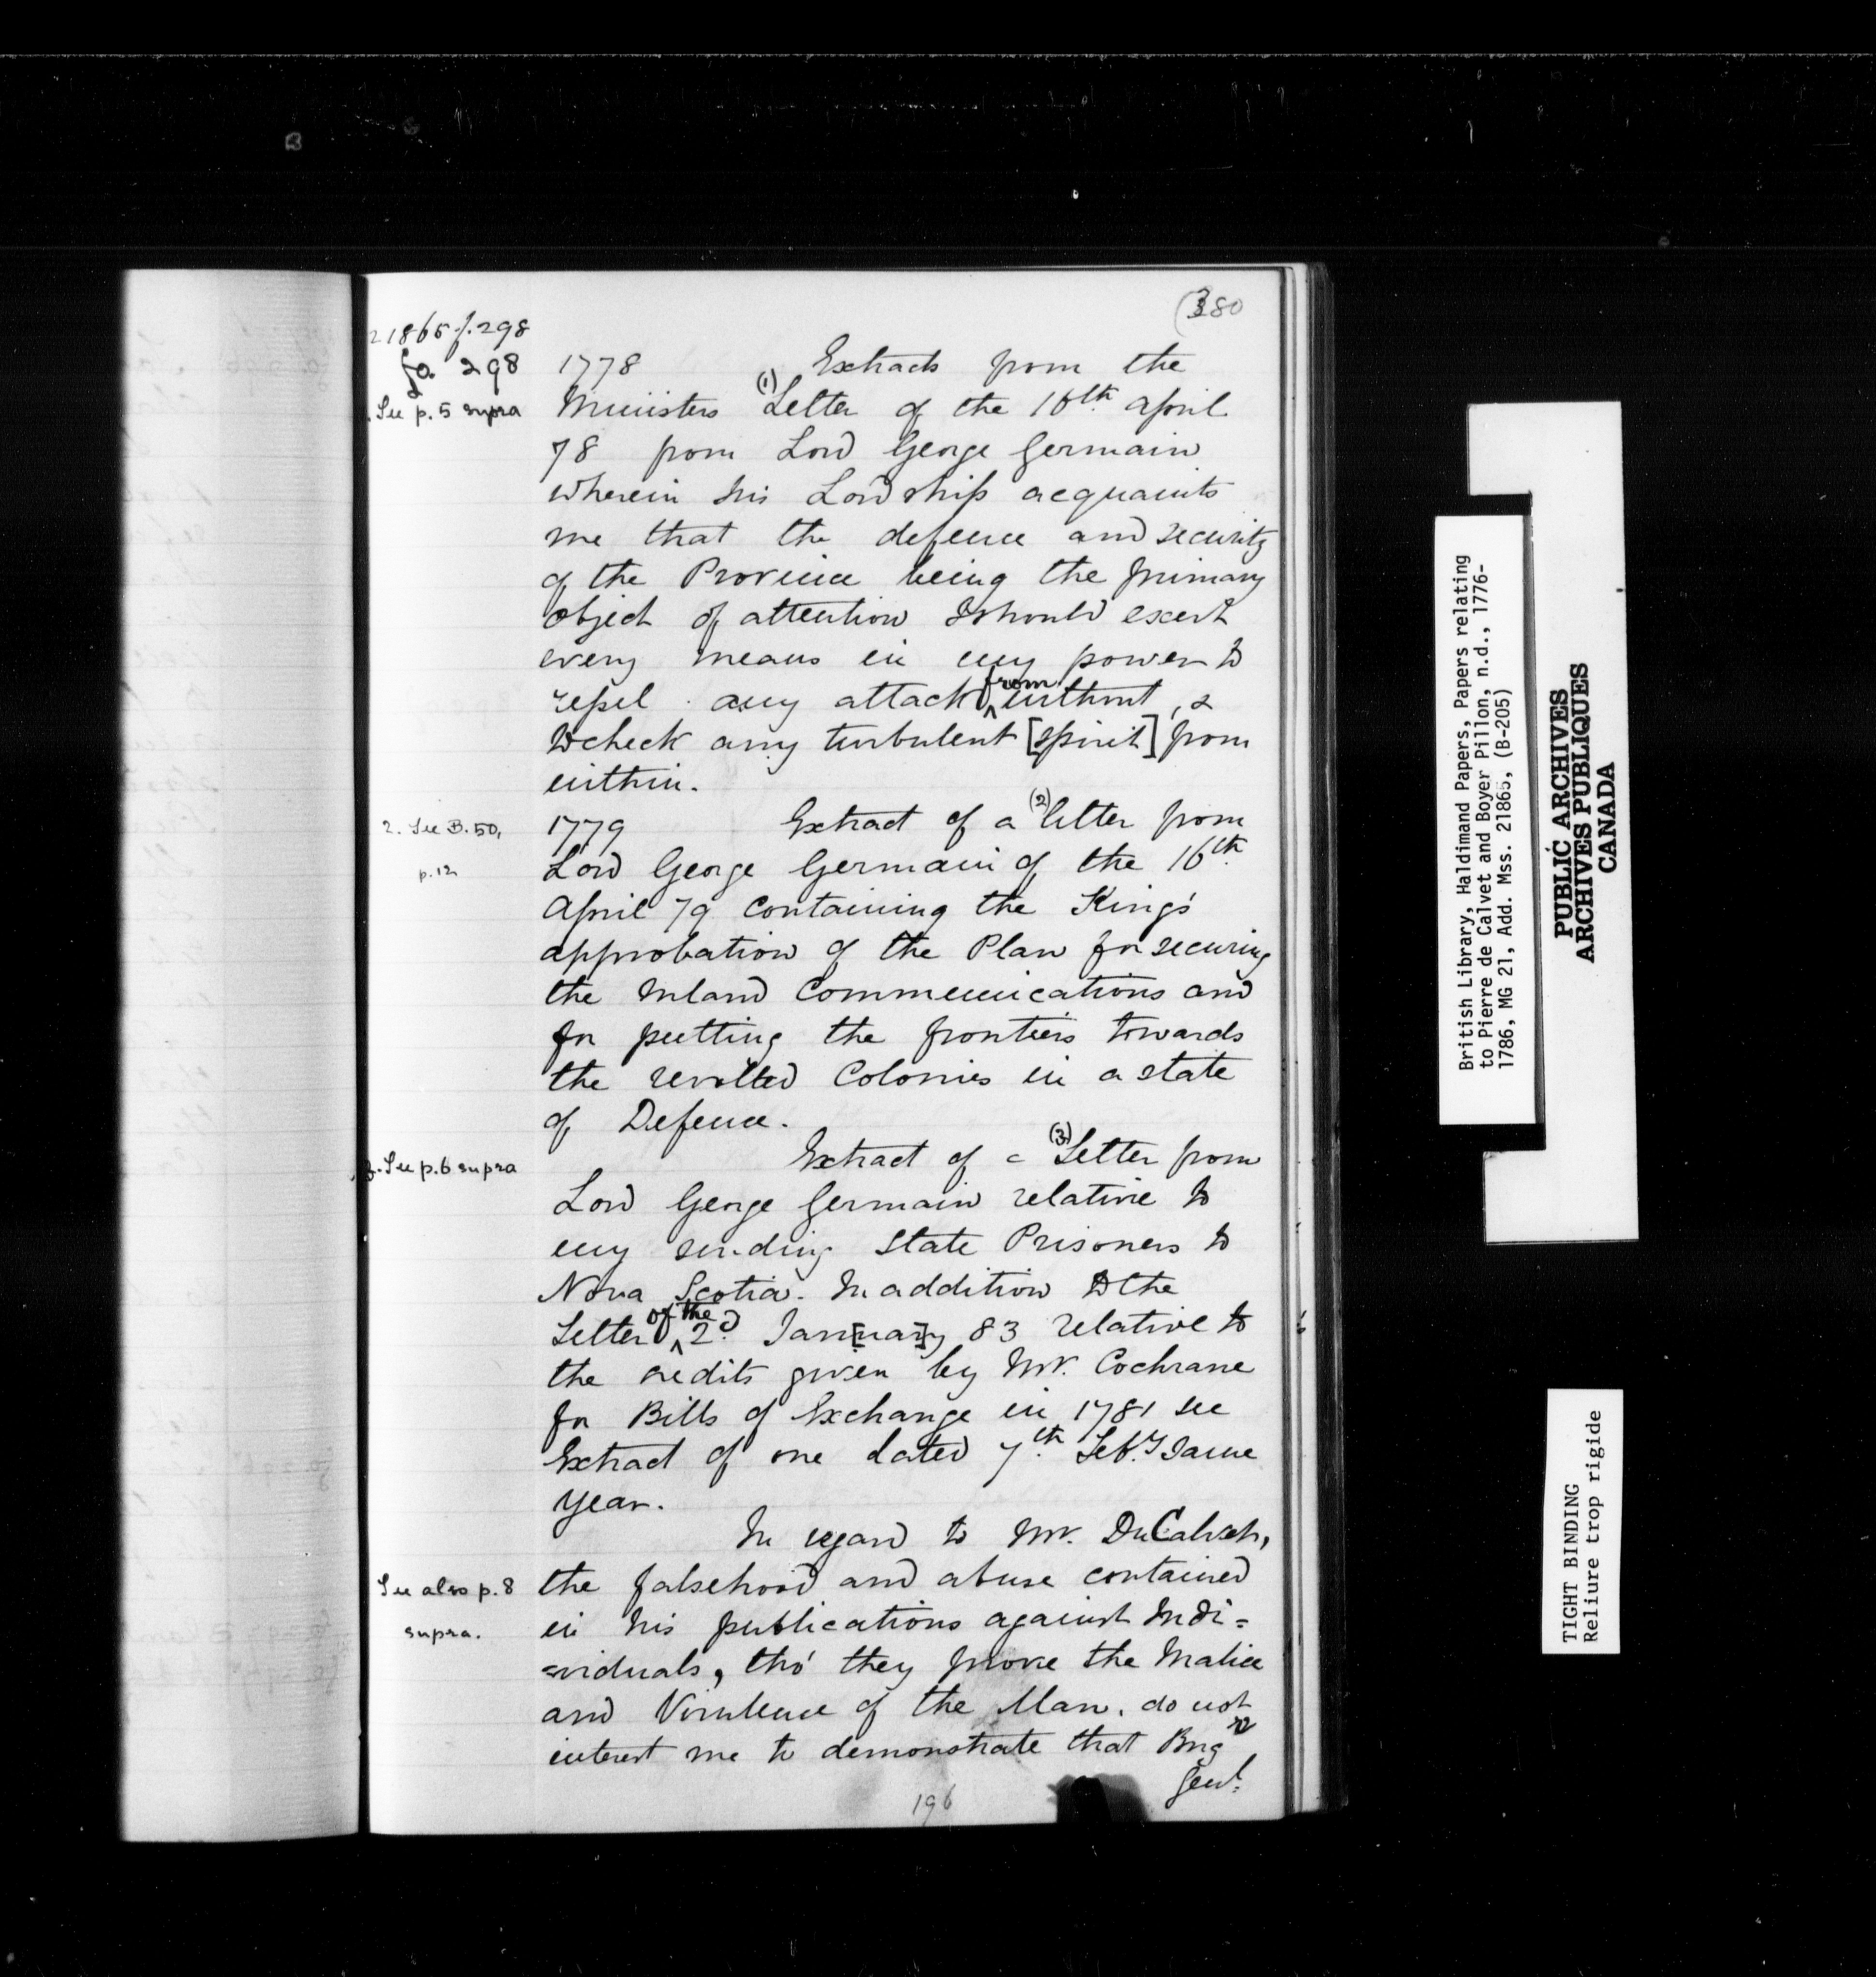 (380
21865 f. 298
fo. 298
1778 Extracts from the
1. See p. 5 supra
Ministers (1) Letter of the 16th April
78 from Lord George Germain
wherein his Lordship acquaints
me that the defence and security
of the Province being the primary
object of attention I should exert
every means in my power to
repel any attack from without, &
to check any turbulent [spirit] from
within.
2. See B. 50,
p. 12
1779 Extract of a (2) letter from
Lord George Germain of the 16th
April 79 containing the King's
approbation of the Plan for securing
the Inland Communications and
for putting the frontiers towards
the revolted Colonies in a state
of Defence.
3. See p. 6 supra
Extract of a (3) Letter from
Lord George Germain relative to
my sending State Prisoners to
Nova Scotia. In addition to the
Letter of the 2d. Jan[uar]y 83 relative to
the credits given by Mr. Cochrane
for Bills of Exchange in 1781 see
Extract of one dated 7th Feby. same
year.
In regard to Mr. DuCalvet,
See also p. 8
supra.
the falsehood and abuse contained
in his publications against Indi=
=viduals, tho' they prove the Malice
and Virulence of the Man, do not
interest me to demonstrate that Brigr
Genl.
196
British Library, Haldimand Papers, Papers relating
to Pierre de Calvet and Boyer Pillon, n.d., 1776-
1786, MG 21, Add. Mss. 21865, (B-205)
PUBLIC ARCHIVES
ARCHIVES PUBLIQUES
CANADA
TIGHT BINDING
Reliure trop rigide